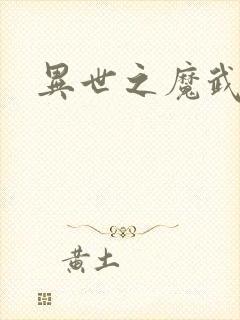 異世之魔武
黃土